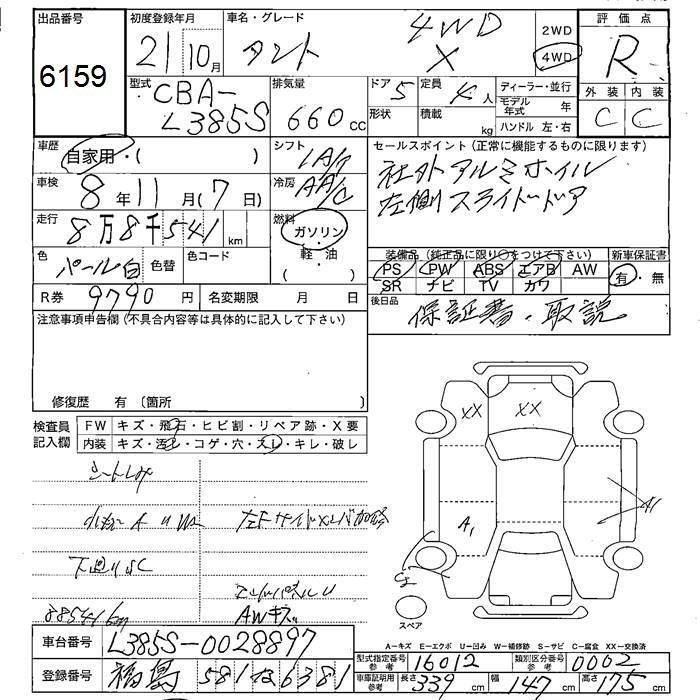 出品番号 初度登録年月 車名・グレード 評価点
6159 21年10月 タント 4WD X 2WD 4WD R
型式 CBA-L385S 排気量 660cc ドア 5 定員 4人 ディーラー・並行 外装 内装
形状 積載 kg モデル年式 年 C C
ハンドル 左・右
車歴 自家用・( ) シフト IA/T セールスポイント(正常に機能するものに限ります)
車検 8年11月(7日) 冷房 AA/C 社外アルミホイル
左側スライドドア
走行 8万8千541km 燃料 ガソリン・軽・油 ( )
色 パール白 色替 色コード 装備品(純正品に限り○をつけて下さい) 新車保証書
PS PW ABS エアB AW 有・無
SR ナビ TV カワ
R券 9790円 名変期限 月 日 後日品 保証書・取説
注意事項申告欄(不具合内容等は具体的に記入して下さい)
修復歴 有(箇所 )
検査員記入欄 FW キズ・飛石・ヒビ割・リペア跡・X要
内装 キズ・汚レ・コゲ・穴・スレ・キレ・破レ
XX XX
A1
下廻りSC
88541km AWキズ
スペア
A-キズ E-エクボ U-凹み W-補修跡 S-サビ C-腐食 XX-交換済
車台番号 L385S-0028897
型式指定番号参考 16012 類別区分番号参考 0002
登録番号 福島 581 6381
車庫証明用参考 長さ 339cm 幅 147cm 高さ 175cm